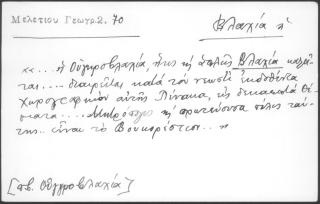 Μελετίου Γεωγρ. 2. 70
Βλαχία ἡ
«... ἡ Οὑγγροβλαχία, ἥτις καὶ ἁπλῶς Βλαχία καλεῖ-
ται.... διαιρεῖται κατὰ τὸν νεωστὶ ἐκδοθέντα
Χωρογραφικὸν αὐτῆς Πίνακα, εἰς δεκαεπτὰ Θέ-
ματα.... Μητρόπολις καὶ πρωτεύουσα πόλις ταύ-
της.. εἶναι τὸ Βουκορέστιον.. »
[πβ. Οὑγγροβλαχία]